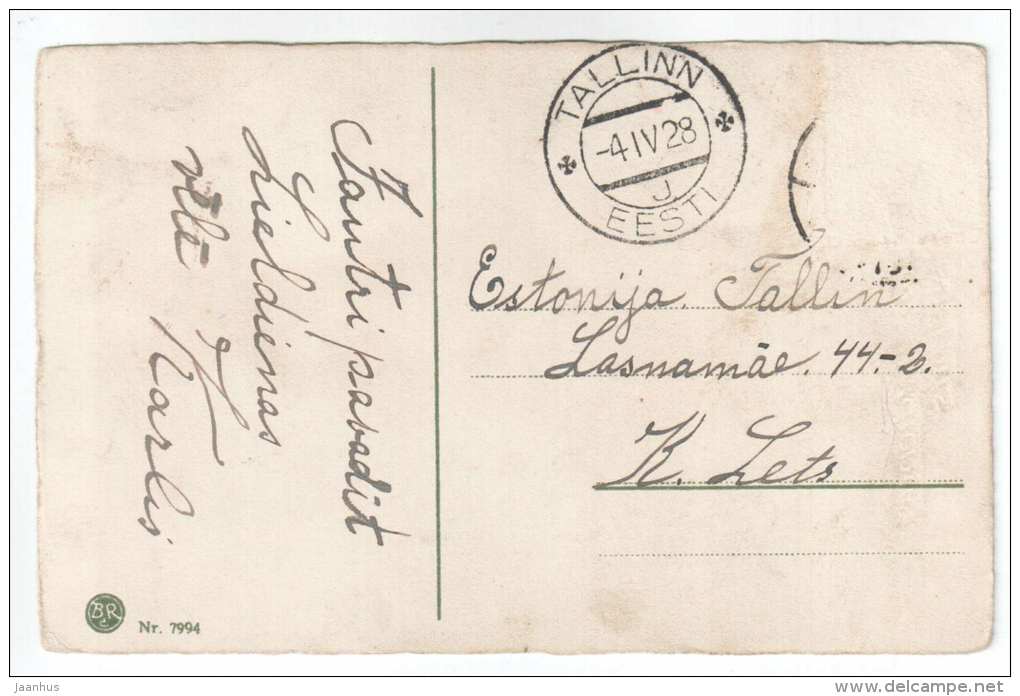 Jautri pavadīt
Lieldienas
vēlē Karlis
TALLINN
-4 IV 28
J
EESTI
Estonija Tallin
Lasnamäe. 44-2.
K. Lets
BR
Nr. 7994
jaanhus
www.delcampe.net